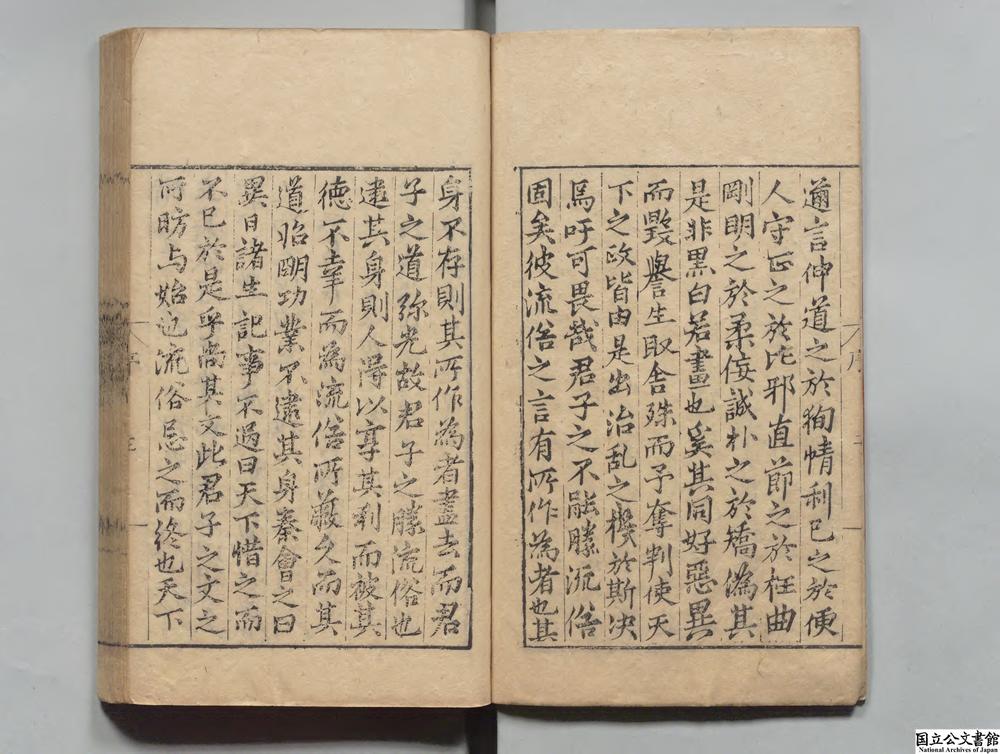 邇言伸道之於狥情利已之於便
人守正之於此邪直節之於枉曲
剛明之於柔佞誠朴之於矯偽其
是非黒白若畫也奚其同好惡異
而毀譽生取舍殊而予奪判使天
下之政皆由是出治乱之機於斯决
焉吁可畏哉君子之不能勝流俗
固矣彼流俗之言有所作為者也其
身不存則其所作為者盡去而君
子之道弥光故君子之勝流俗也
逮其身則人得以享其利而被其
徳不幸而為流俗所蔽久而其
道昭明功業不逮其身秦會之曰
異日諸生記事不過曰天下惜之而
不已於是乎尚其文此君子之文之
所昉与始也流俗忌之而終也天下
序
国立公文書館
National Archives of Japan